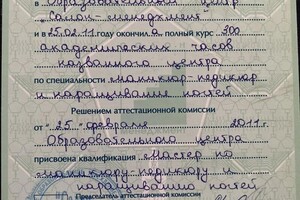 в Образовательный центр
"Салон-менеджмент"
и в 25.02.11 году окончил а полный курс 300
академических часов
названного центра
по специальности маникюр-педикюр
и наращивание ногтей
Решением аттестационной комиссии
от "25" февраля 2011г.
Образовательного центра
присвоена квалификация "Мастер по
маникюру-педикюру и
наращиванию ногтей
Председатель аттестационной комиссии